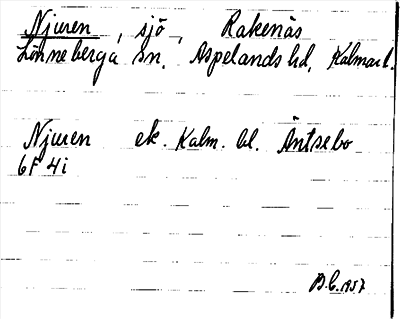 Njuren, sjö, Rakenäs
Lönneberga sn. Aspelands hd. Kalmar l.
Njuren ek. Kalm. bl. Äntsebo
6F 4i
B.C. 1957